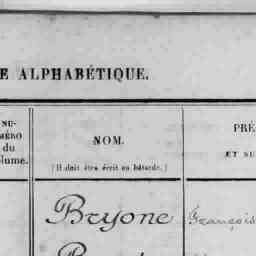 E ALPHABÉTIQUE.
NU-
MÉRO
du
olume.
NOM.
(Il doit être écrit en bâtarde.)
PRÉ
ET SU
Bryone
François